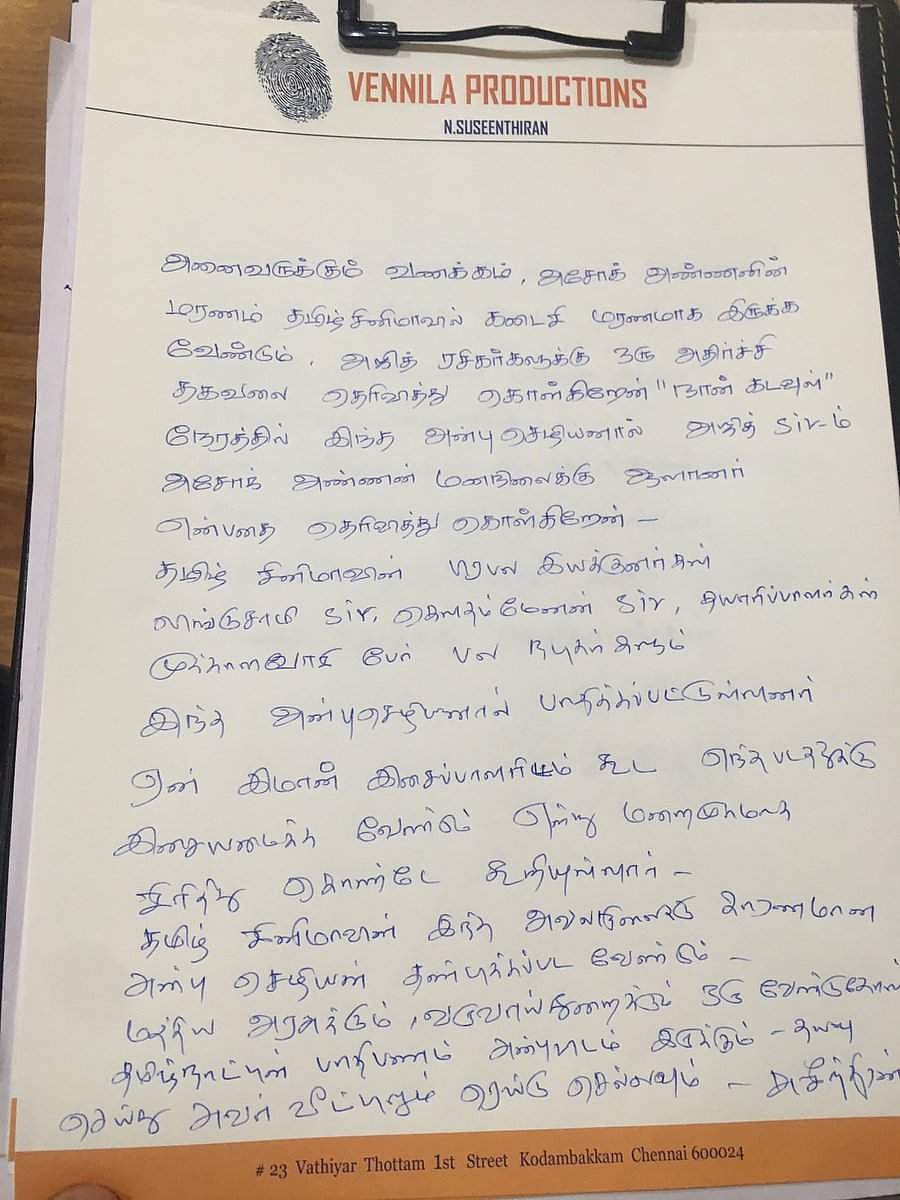 VENNILA PRODUCTIONS
N.SUSEENTHIRAN
அனைவருக்கும் வணக்கம், அசோக் அண்ணனின்
மரணம் தமிழ் சினிமாவில் கடைசி மரணமாக இருக்க
வேண்டும். அஜித் ரசிகர்களுக்கு ஒரு அதிர்ச்சி
தகவலை தெரிவித்து கொள்கிறேன் "நான் கடவுள்"
நேரத்தில் இந்த அன்பு செழியனால் அஜித் Sir-ம்
அசோக் அண்ணன் மனநிலைக்கு ஆளானார்
என்பதை தெரிவித்து கொள்கிறேன் –
தமிழ் சினிமாவின் பிரபல இயக்குனர்கள்
லிங்குசாமி Sir, கௌதம்மேனன் Sir, தயாரிப்பாளர்கள்
முக்கால்வாசி பேர் பல நடிகர்களும்
இந்த அன்புசெழியனால் பாதிக்கப்பட்டுள்ளனர்
ஏன் இமான் இசைப்பாளரிடம் கூட எந்த படத்துக்கு
இசையமைக்க வேண்டும் என்று மறைமுகமாக
கொண்டே கூறியுள்ளார் –
தமிழ் சினிமாவின் இந்த அவலநிலைக்கு காரணமான
அன்பு செழியன் தண்டிக்கப்பட வேண்டும் –
மத்திய அரசுக்கும், வருவாய்துறைக்கும் ஒரு வேண்டுகோள்
தமிழ்நாட்டின் பாதிபணம் அன்புவிடம் இருக்கும் – தயவு
செய்து அவர் வீட்டிலும் ரெய்டு செல்லவும் – சுசீந்திரன்
# 23 Vathiyar Thottam 1st Street Kodambakkam Chennai 600024